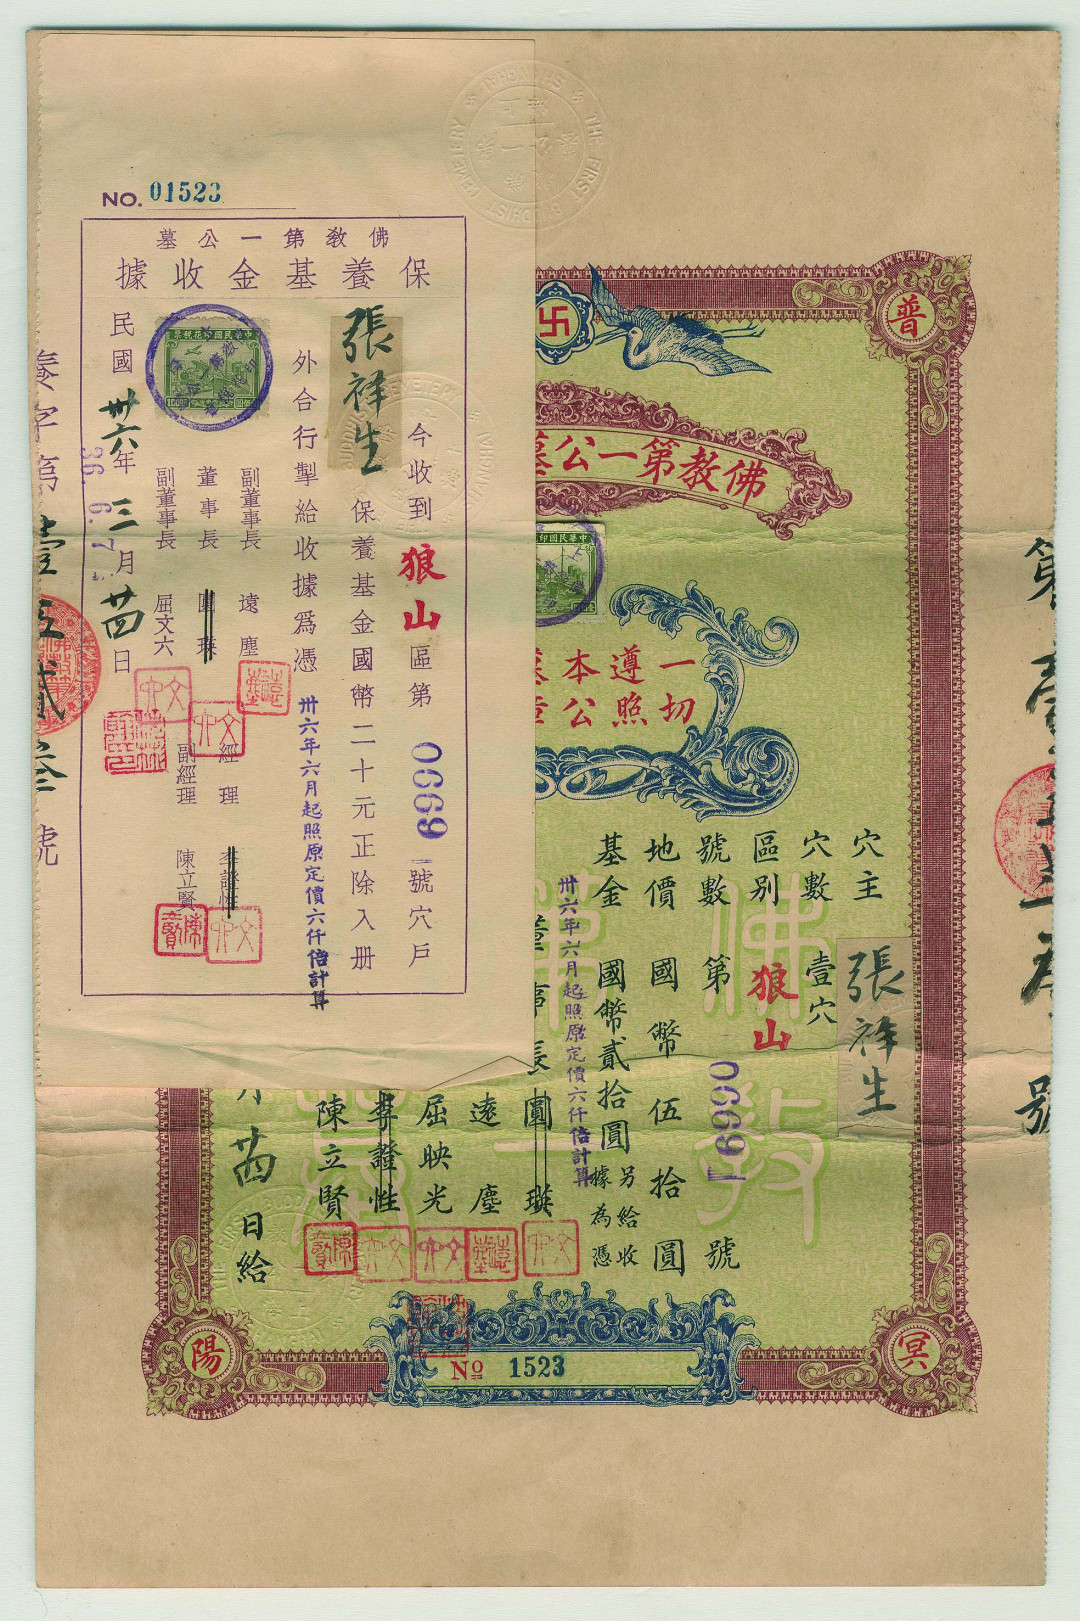 THE FIRST BUDDHIST CEMETERY SHANGHAI
NO. 01523
佛教第一公墓
保養基金收據
今收到狼山區第0669號穴戶
張祥生保養基金國幣二十元正除入册
外合行掣給收據爲憑
卅六年六月起照原定價六仟倍計算
副董事長 遠塵
董事長 圓瑛
副董事長 屈文六
經理 李證性
副經理 陳立賢
民國卅六年三月廿四日
36.6.7
中華民國印花稅票
養字第壹伍貳叁號
普
卍
佛教第一公墓
中華民國印
一切
遵照
本公
穴主 張祥生
穴數 壹穴
區別 狼山
號數 第0669號
地價 國幣伍拾圓
基金 國幣貳拾圓 另給收據為憑
卅六年六月起照原定價六仟倍計算
董事長 圓瑛
遠塵
屈映光
李證性
陳立賢
月廿四日給
佛教第一
陽
冥
No 1523
號